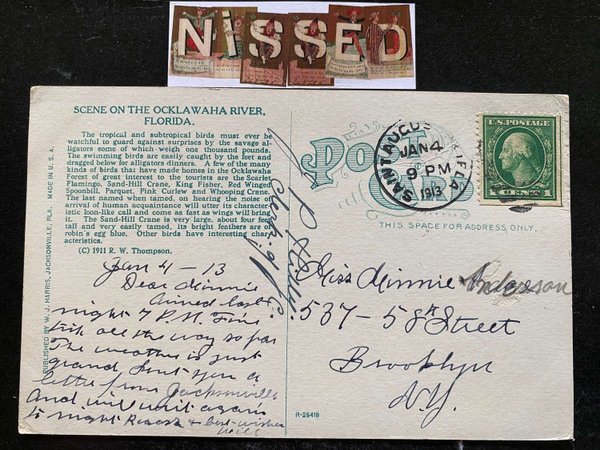 NiSSED
SCENE ON THE OCKLAWAHA RIVER,
FLORIDA.
The tropical and subtropical birds must ever be
watchful to guard against surprises by the savage al-
ligators some of which weigh one thousand pounds.
The swimming birds are easily caught by the feet and
drugged below for alligators dinners. A few of the many
kinds of birds that have made homes in the Ocklawaha
Forest of great interest to the tourists are the Scarlet,
Flamingo, Sand-Hill Crane, King Fisher, Red Winged
Spoonbill, Parquet, Pink Curlew and Whooping Crane.
The last named when tamed, on hearing the noise of
arrival of human acquaintance will utter its character-
istic loon-like call and come as fast as wings will bring
it. The Sand-Hill Crane is very large, about four feet
tall and very easily tamed, its bright feathers are of
robin's egg blue. Other birds have interesting char-
acteristics.
(C) 1911 R. W. Thompson.
PUBLISHED BY W. J. HARRIS, JACKSONVILLE, FLA. MADE IN U.S.A.
Jan 4 - 13
Dear Minnie
Arrived last
night 7 P.M. Fine
trip all the way so far
The weather is just
grand, sent you a
letter from Jacksonville
and will writ again
to night Regards & best wishes
Will
Post
SAINT AUGUS FLA
JAN 4
9 PM
1913
U.S. POSTAGE
CENTS
THIS SPACE FOR ADDRESS ONLY.
Miss Minnie Anderson
537 - 58th Street
Brooklyn
N.Y.
R-25418